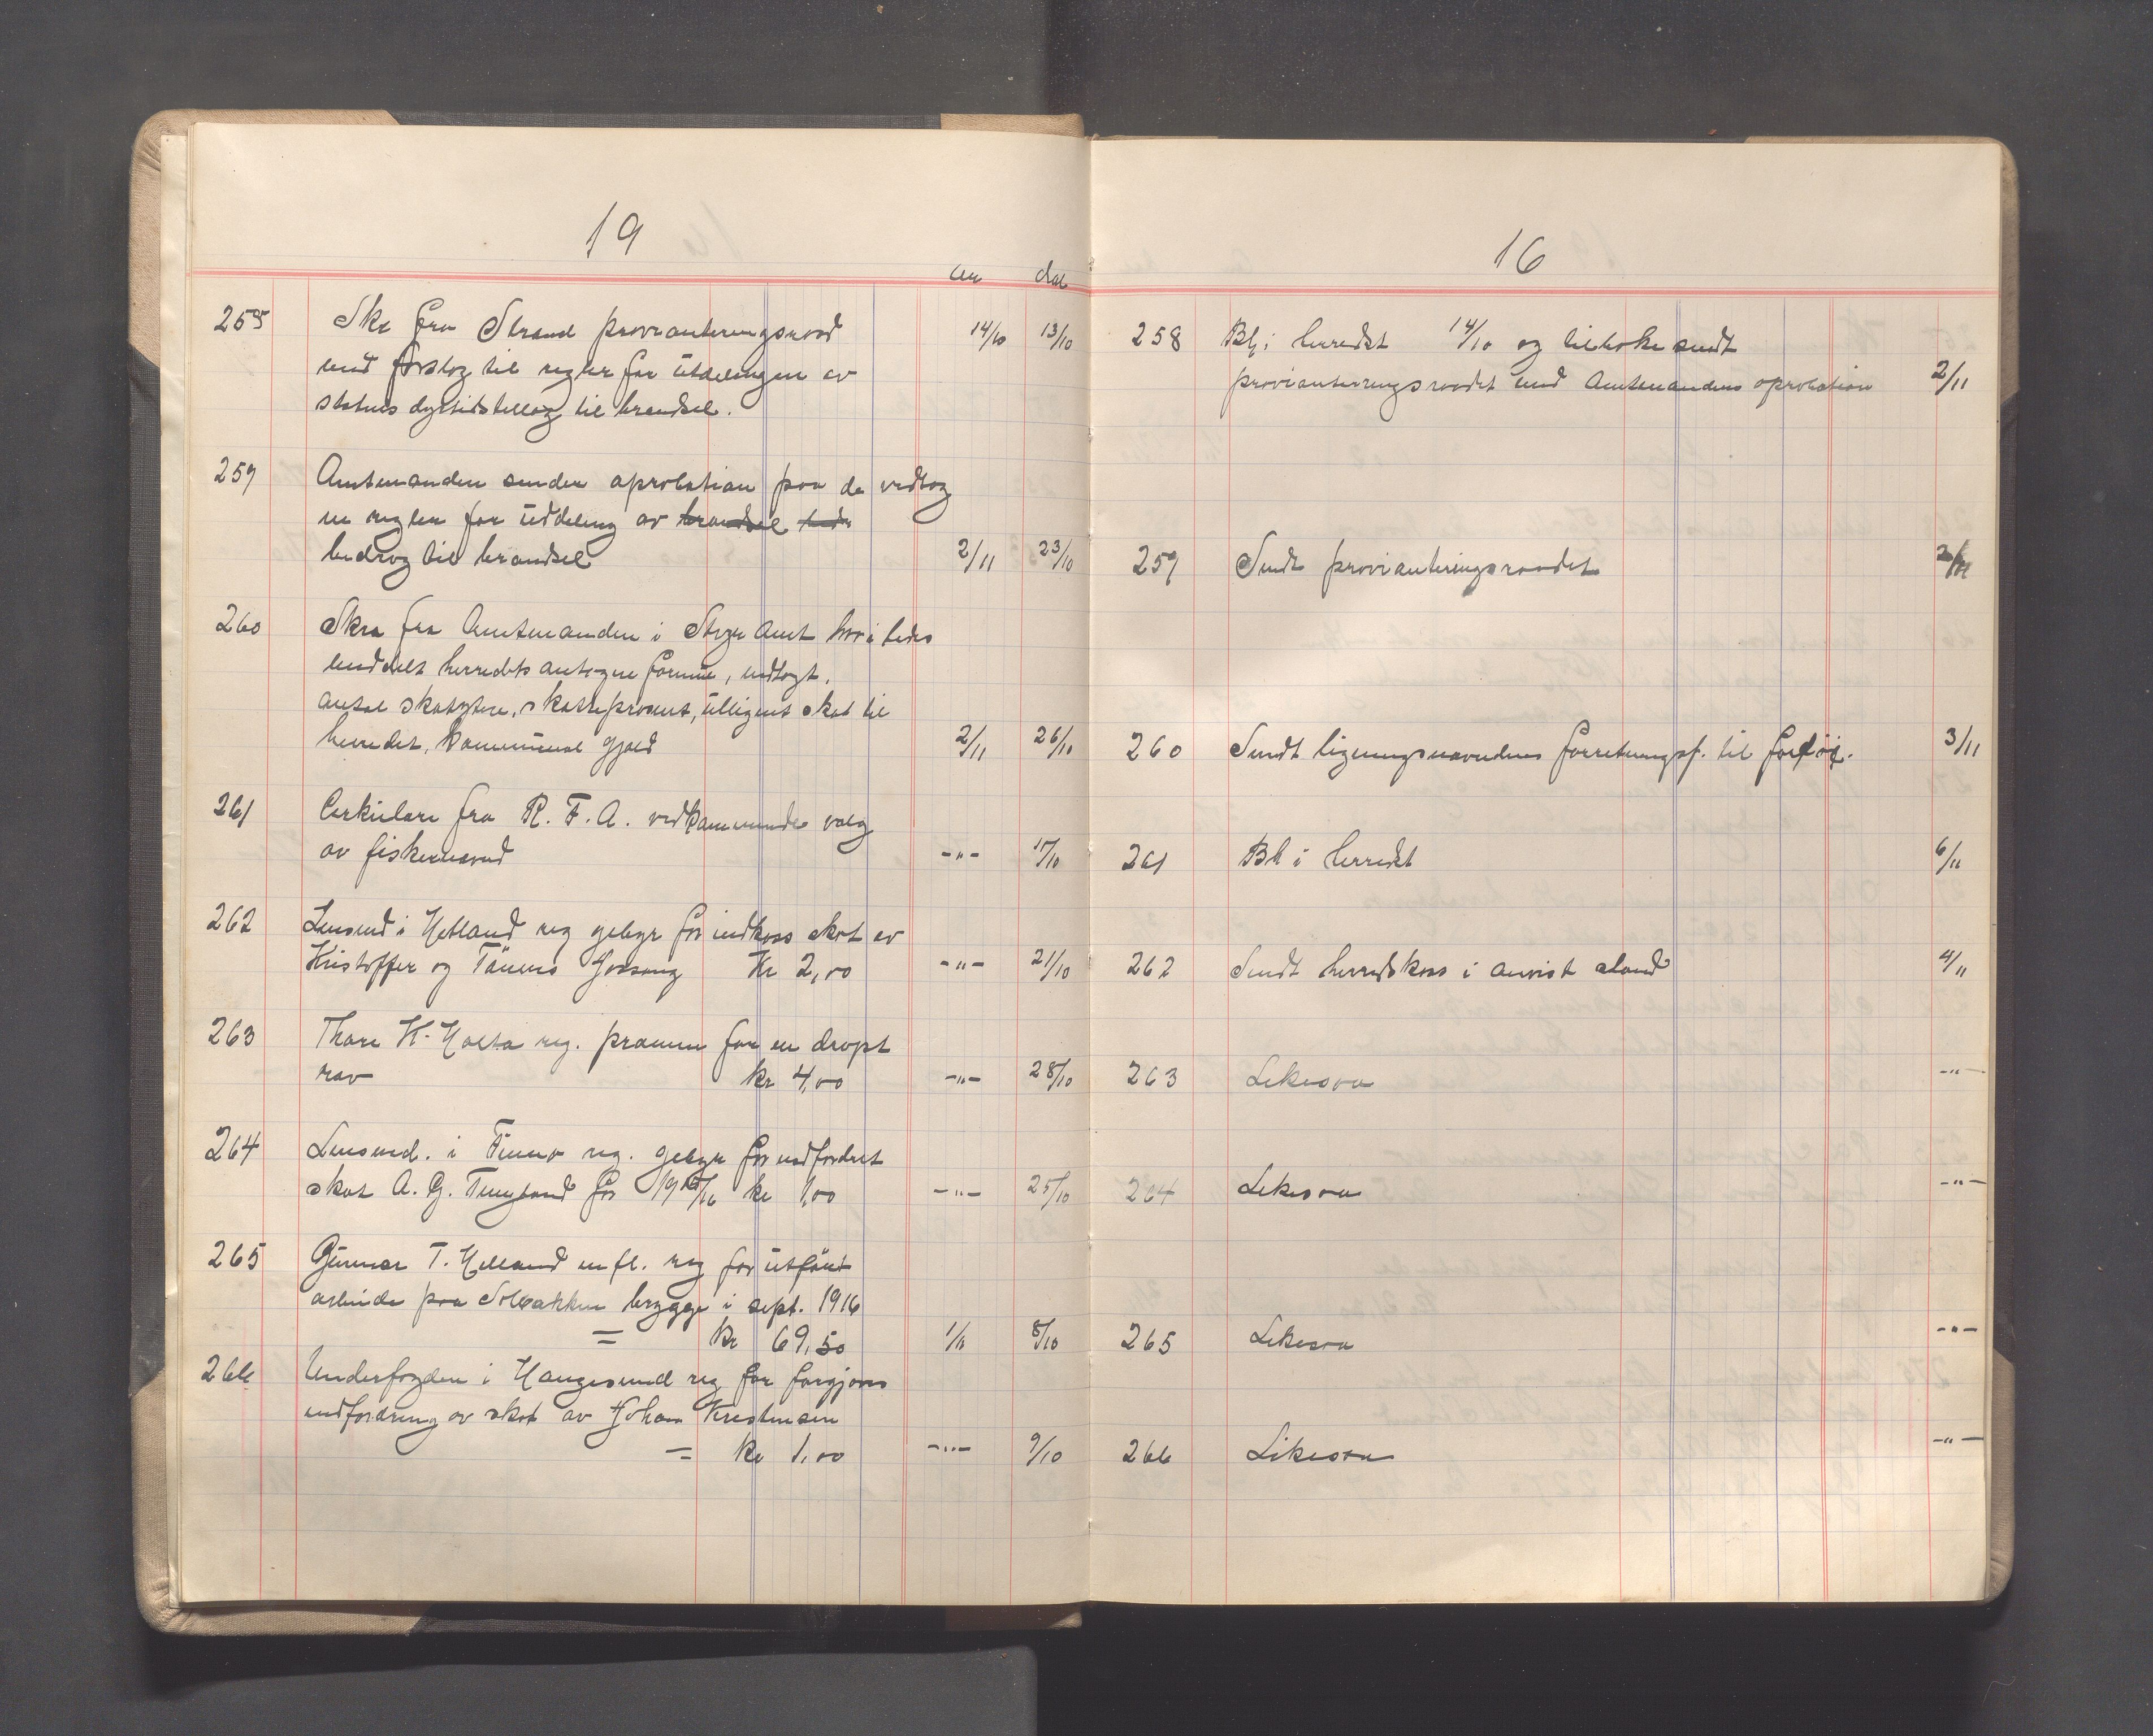 19
an dat
255 Skr fra Strand provianteringsraad 14/10 13/10
med forslag til regler for utdelingen av
statens dyrtidstillæg til brændsel.
259 Amtmanden sender aprobation paa de vedtag
ne regler for uddeling av brændsel bidr
bidrag til brændsel 2/11 23/10
260 Skr fra Amtmanden i Stvgr Amt hvori bedes
meddelt herredets antagne formue, indtægt,
antal skatytere, skatteprocent, utlignet skat til
herredet, kommunal gjæld 2/11 26/10
261 Cirkulære fra R. F. A. vedkommende valg
av fiskernævnd -"- 17/10
262 Lensmd i Hetland reg gebyr for indkass skat av
Kristoffer og Tønnes Kr 2,00 -"- 21/10
263 Thore K. Holta reg. præmie for en dræpt
ræv kr 4,00 -"- 28/10
264 Lensmd. i Finnø reg. gebyr for indfordret
skat A. G. for 1915/16 kr 1,00 -"- 25/10
265 Gunnar T. Helland m fl. reg for utført
arbeide paa Solbakken brygge i sept. 1916
= Kr 69,50 1/11 8/10
266 Underfogden i Haugesund reg for forgjæves
indfordring av skat av Johan Kristensen
= kr 1,00 -"- 9/10
16
258 Bh i herredet 14/10 og tilbakesendt
provianteringsraadet med Amtmandens aprobation 2/11
259 Sendt provianteringsraadet 2/11
260 Sendt ligningsnævndens forretningsf. til 3/11
261 Bh i herredet 6/11
262 Sendt herredskass i anvist stand 4/11
263 Likesaa -"-
264 Likesaa -"-
265 Likesaa -"-
266 Likesaa -"-